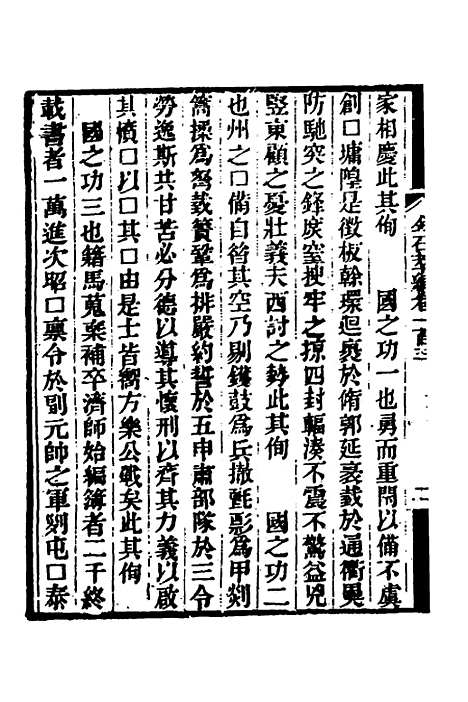 家相慶此其徇　國之功一也勇而重閉以備不虞
創口墉隍是徵板榦環迴裹於脩郭延袤載於通衢
防馳突之鋒族窒搜牢之掠四封輻湊不震不驚益兕
豎東顧之憂壯義夫西討之勢此其徇　國之功二
也州之口備自昔其空乃剔鑊鼓為兵撤氈影為甲剡
蒿揉為弩裁贊鞏為排嚴約誓於五申肅部隊於三令
勞逸斯共甘苦必分德以導其懷刑以齊其力義以啟
其憤口以口其口由是士皆嚮方樂公戰矣此其徇
國之功三也籍馬蒐乘補卒濟師始編簿者二千終
載書者一萬進次昭口稟令於副元帥之軍剡屯口泰
金石萃編卷一百三